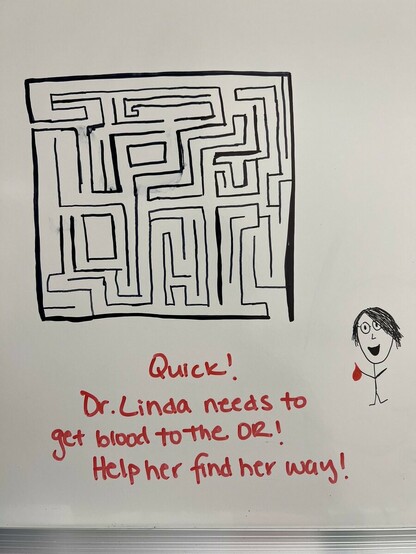 Quick!
Dr. Linda needs to
get blood to the OR!
Help her find her way!